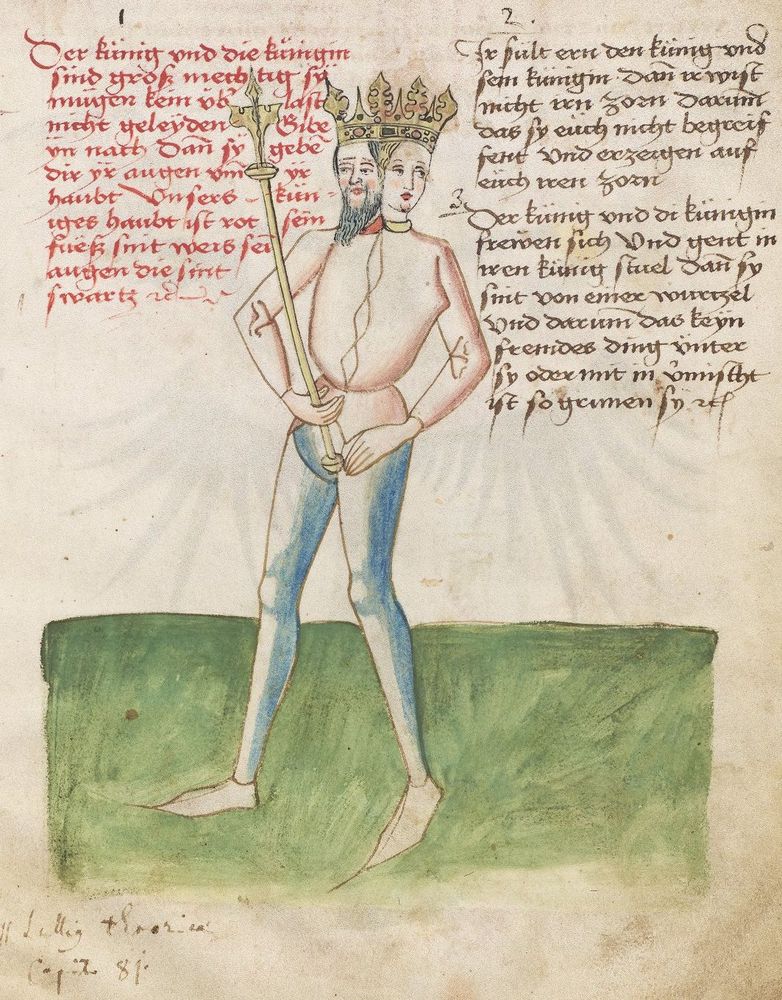 1
Der künig vnd die künigin
sind groß mechtig sy
mugen kein vb̄ last
nicht geleyden Gibe
yn nach dan̄ sy gebē
dir yr augen vm̄ yr
haubt Vnsers kün-
iges haubt ist rot sein
fueß sint weis sei
augen die sint
swartz ⁊c
2.
Ir sült ern den künig vnd
sein künigin dan̄ ir wist
nicht irn zorn darum̄
das sy euch nicht begreif
fent vnd erzeigen auf
euch iren zorn
3
Der künig vnd di künigin
frewen sich Vnd gent in
iren künig stuel dan̄ sy
sint von einer wurtzel
Vnd darum̄ das keyn
fremdes ding vnter
sy oder mit in v̄mischt
ist so grunen sy ⁊c
theorica
81.